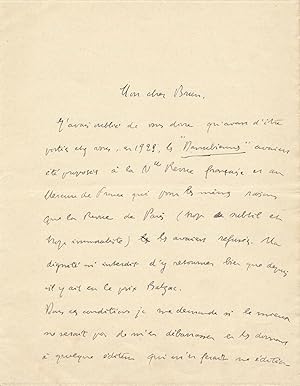 Mon cher Brun.
J'avais oublié de vous dire qu'avant d'être
portés chez vous, en 1928, les "
" avaient
été proposés à la Nlle Revue française et au
Mercure de France qui pour les mêmes raisons
que la Revue de Paris (trop subtil et
trop immoraliste) les avaient refusés. Ma
dignité m'interdit d'y retourner bien que depuis
il y ait eu le prix Balzac.
Dans ces conditions je me demande si le mieux
ne serait pas de m'en débarrasser en les donnant
à quelque éditeur qui m'en ferait une édition